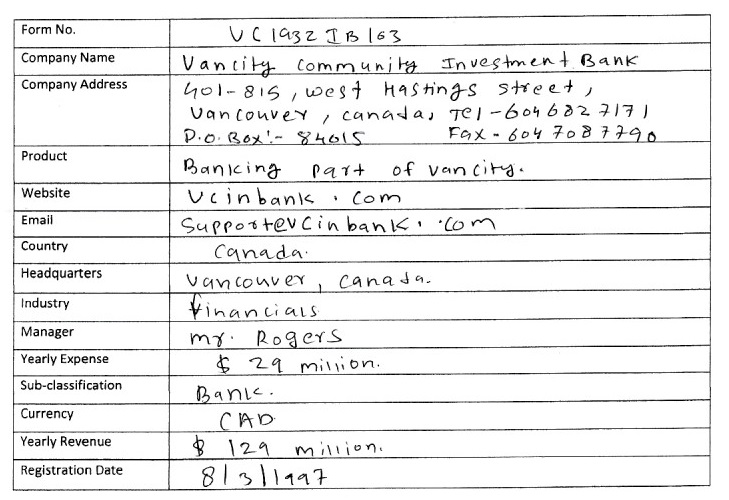 Form No. VC1932IB163
Company Name Vancity community Investment Bank
Company Address 401-815, west Hastings street,
Vancouver, canada, Tel-604 682 7171
P.O. Box:- 84015 Fax-604 708 7790
Product Banking part of vancity.
Website Vcinbank.com
Email Support@VCinbank..com
Country Canada.
Headquarters Vancouver, canada.
Industry financials
Manager mr. Rogers
Yearly Expense $ 29 million.
Sub-classification Bank.
Currency CAD
Yearly Revenue $ 129 million.
Registration Date 8/3/1997